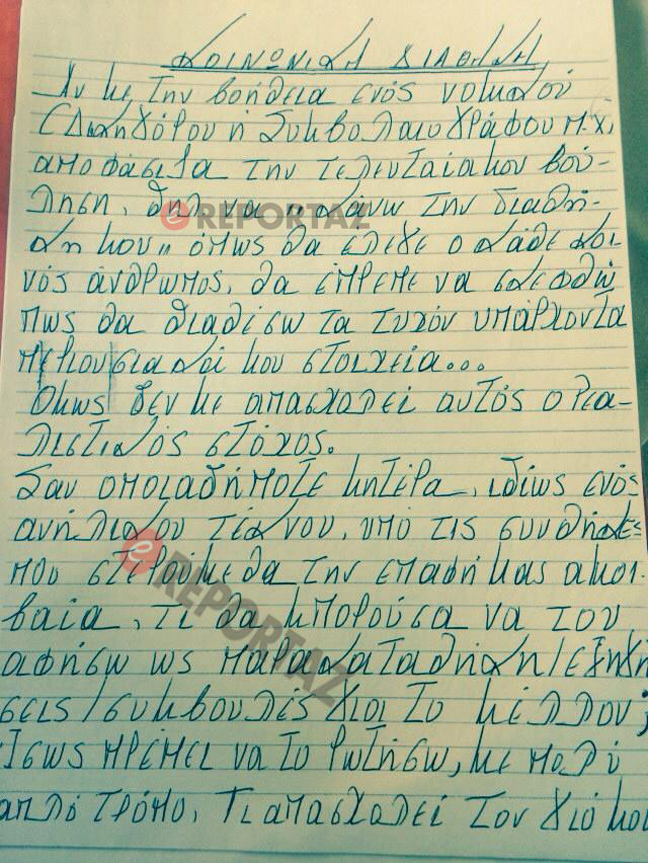 ΚΟΙΝΩΝΙΚΗ ΔΙΑΘΗΚΗ
Αν με την βοήθεια ενός νομικού
(Δικηγόρου ή Συμβολαιογράφου π.χ.
αποφάσιζα την τελευταία μου βού-
ληση, δηλ να "κάνω την διαθή-
κη μου" όπως θα έλεγε ο κάθε κοι
νός άνθρωπος, θα έπρεπε να σκεφθώ
πως θα διαθέσω τα τυχόν υπάρχοντα
περιουσιακά μου στοιχεία...
Όμως δεν με απασχολεί αυτός ο ρεα-
λιστικός στόχος.
Σαν οποιαδήποτε μητέρα, ιδίως ενός
ανήλικου τέκνου, υπό τις συνθήκες
που στερούμεθα την επαφή μας αμοι-
βαία, τι θα μπορούσα να του
αφήσω ως παρακαταθήκη/εξηγή
σεις/συμβουλές για το μέλλον;
Ίσως πρέπει να το ρωτήσω, με πολύ
απλό τρόπο, Τι απασχολεί τον γιό μου
e REPORTAZ
e REPORTAZ